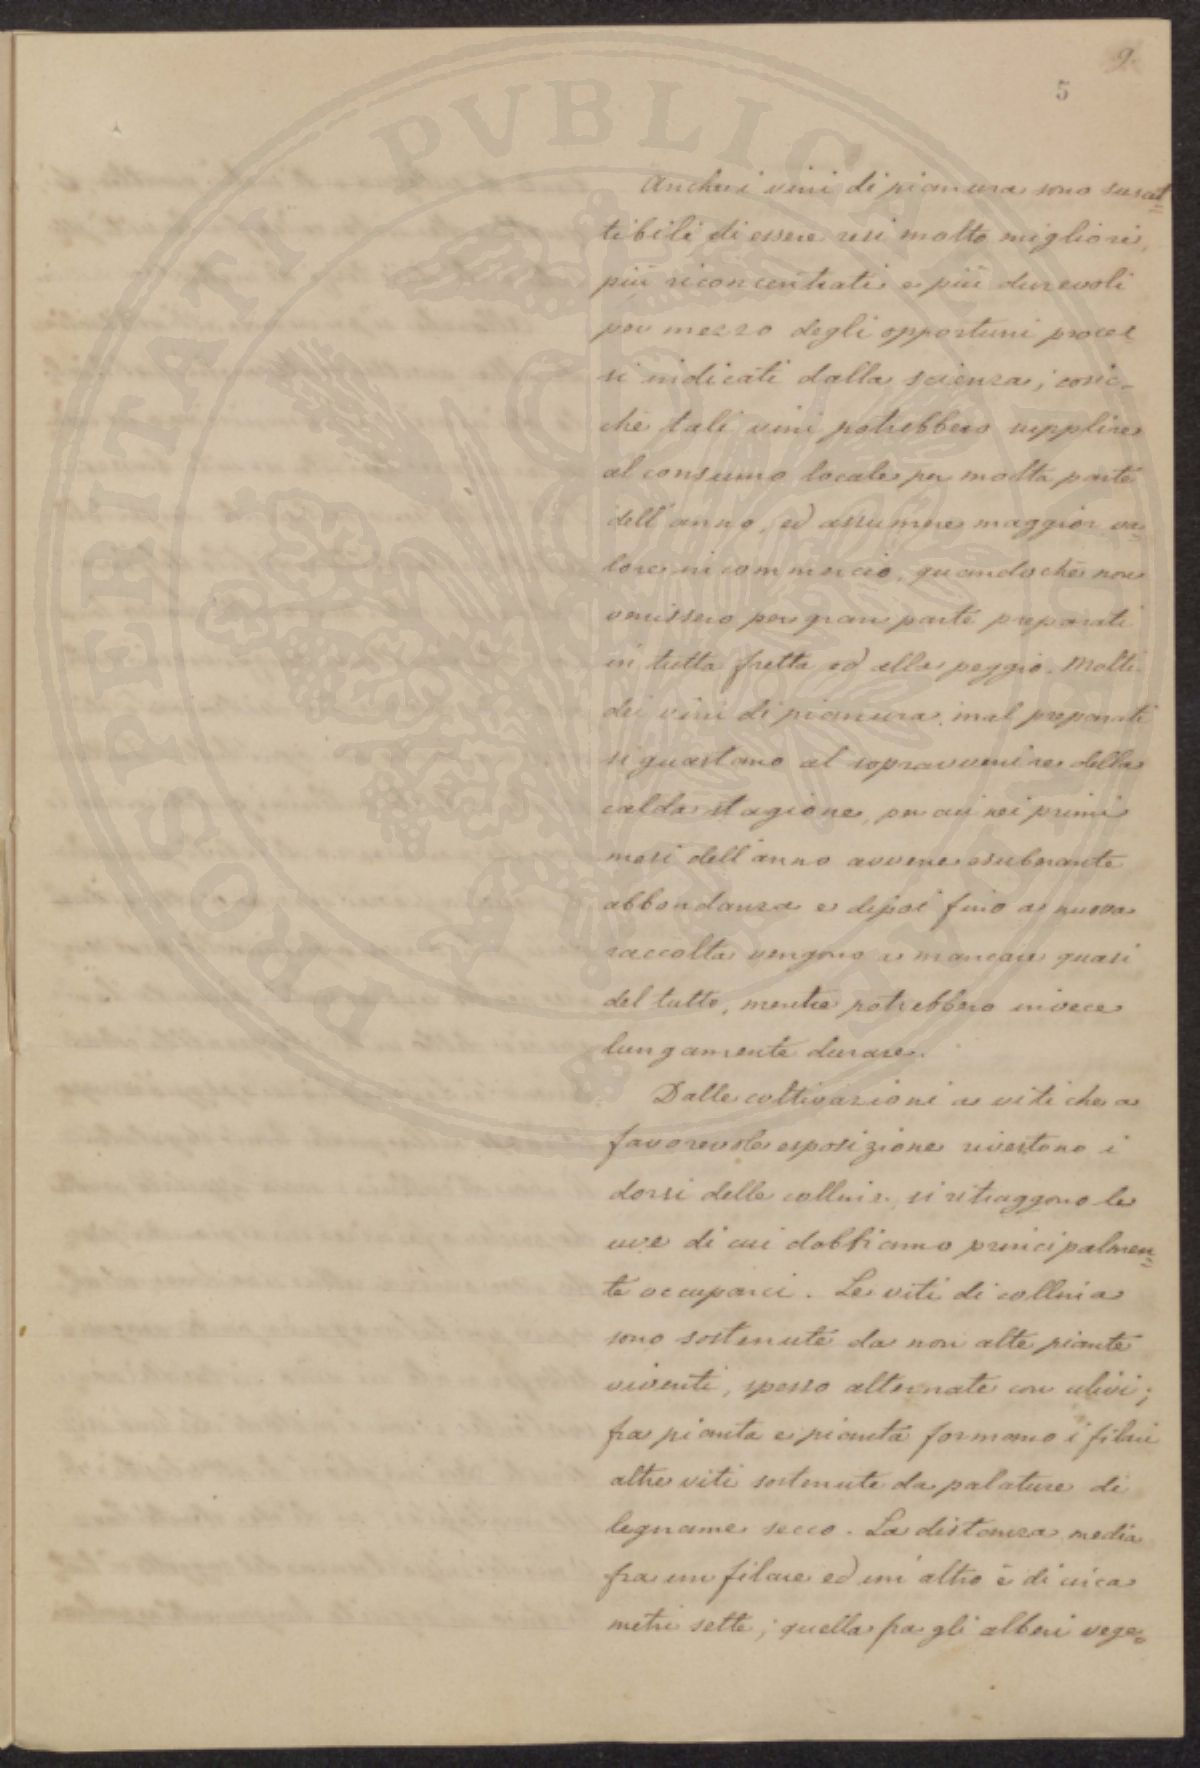 9.
5
PROSPERITATI PVBLICAE AVGENDAE
Anche i vini di pianura sono suscet=
tibili di essere resi molto migliori,
più riconcentrati e più durevoli
per mezzo degli opportuni proces
si indicati dalla scienza; cosic=
chè tali vini potrebbero supplire
al consumo locale per molta parte
dell'anno, ed assumere maggior va=
lore in commercio, quandochè non
venissero per gran parte preparati
in tutta fretta ed alla peggio. Molti
dei vini di pianura mal preparati
si guastano al sopravvenire della
calda stagione, per cui nei primi
mesi dell'anno avvene esuberante
abbondanza e dipoi fino a nuova
raccolta vengono a mancare quasi
del tutto, mentre potrebbero invece
lungamente durare.
Dalle coltivazioni a viti che a
favorevole esposizione rivestono i
dorsi delle colline, si ritraggono le
uve di cui dobbiamo principalmen=
te occuparci. Le viti di collina
sono sostenute da non alte piante
viventi, spesso alternate con ulivi;
fra pianta e pianta formano i filari
altre viti sostenute da palature di
legname secco. La distanza media
fra un filare ed un'altro è di circa
metri sette; quella fra gli alberi vege=